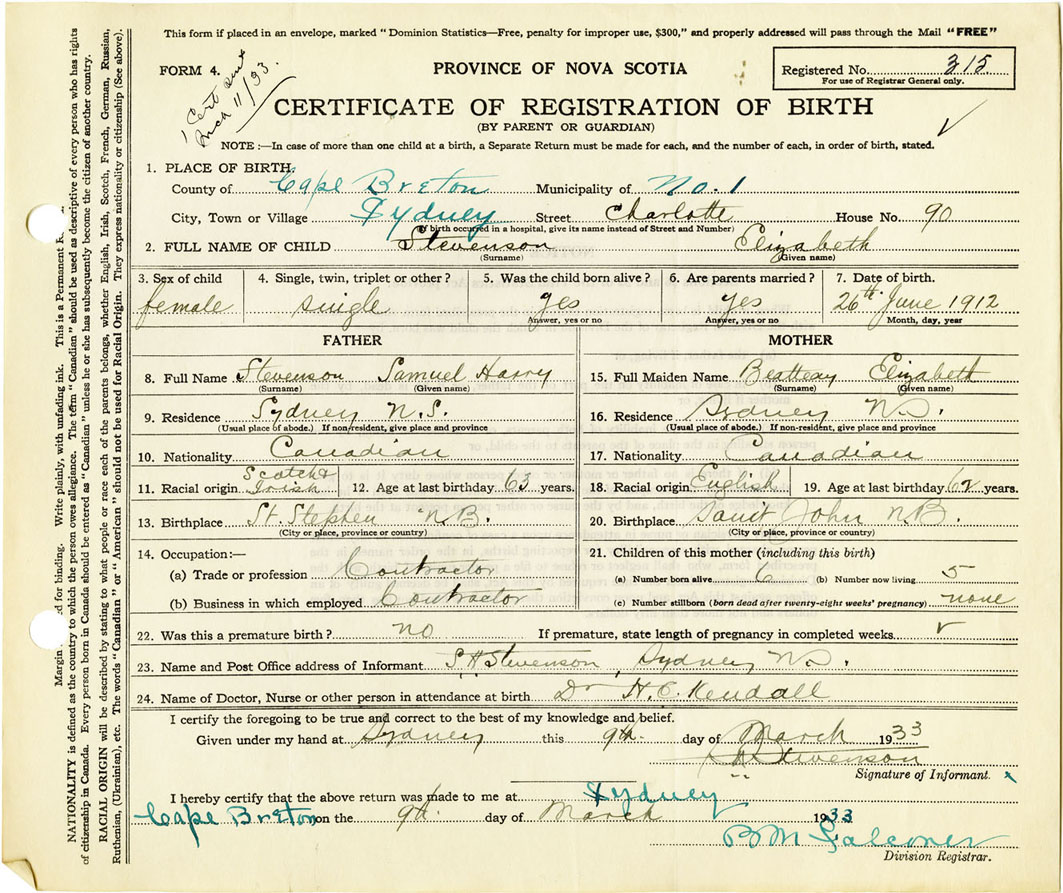 This form if placed in an envelope, marked "Dominion Statistics—Free, penalty for improper use, $300," and properly addressed will pass through the Mail "FREE"
FORM 4.
1 Cert sent
Mch 11/33.
PROVINCE OF NOVA SCOTIA
Registered No. 315
For use of Registrar General only.
CERTIFICATE OF REGISTRATION OF BIRTH
(BY PARENT OR GUARDIAN)
NOTE :—In case of more than one child at a birth, a Separate Return must be made for each, and the number of each, in order of birth, stated.
1. PLACE OF BIRTH.
County of Cape Breton Municipality of No. 1
City, Town or Village Sydney Street Charlotte House No. 90
(If birth occurred in a hospital, give its name instead of Street and Number)
2. FULL NAME OF CHILD Stevenson Elizabeth
(Surname) (Given name)
3. Sex of child 4. Single, twin, triplet or other? 5. Was the child born alive? 6. Are parents married? 7. Date of birth.
female single yes Yes 26th June 1912
Answer, yes or no Answer, yes or no Month, day, year
FATHER
8. Full Name Stevenson Samuel Harry
(Surname) (Given name)
9. Residence Sydney N.S.
(Usual place of abode.) If non-resident, give place and province
10. Nationality Canadian
11. Racial origin Scotch & Irish 12. Age at last birthday 63 years.
13. Birthplace St. Stephen N.B.
(City or place, province or country)
14. Occupation:—
(a) Trade or profession Contractor
(b) Business in which employed Contractor
MOTHER
15. Full Maiden Name Beatteay Elizabeth
(Surname) (Given name)
16. Residence Sydney N.S.
(Usual place of abode.) If non-resident, give place and province
17. Nationality Canadian
18. Racial origin English 19. Age at last birthday 62 years.
20. Birthplace Saint John N.B.
(City or place, province or country)
21. Children of this mother (including this birth)
(a) Number born alive 6 (b) Number now living 5
(c) Number stillborn (born dead after twenty-eight weeks' pregnancy) none
22. Was this a premature birth? no If premature, state length of pregnancy in completed weeks
23. Name and Post Office address of Informant S H Stevenson, Sydney N.S.
24. Name of Doctor, Nurse or other person in attendance at birth Dr H.E. Kendall
I certify the foregoing to be true and correct to the best of my knowledge and belief.
Given under my hand at Sydney this 9th day of March 1933
Stevenson
Signature of Informant.
I hereby certify that the above return was made to me at Sydney
Cape Breton on the 9th day of March 1933
B M Falconer
Division Registrar.
Margin for binding. Write plainly, with unfading ink. This is a Permanent
NATIONALITY is defined as the country to which the person owes allegiance. The term "Canadian" should be used as descriptive of every person who has rights
of citizenship in Canada. Every person born in Canada should be entered as "Canadian" unless he or she has subsequently become the citizen of another country.
RACIAL ORIGIN will be described by stating to what people or race each of the parents belongs, whether English, Irish, Scotch, French, German, Russian,
Ruthenian, (Ukrainian), etc. The words "Canadian" or "American" should not be used for Racial Origin. They express nationality or citizenship (See above).